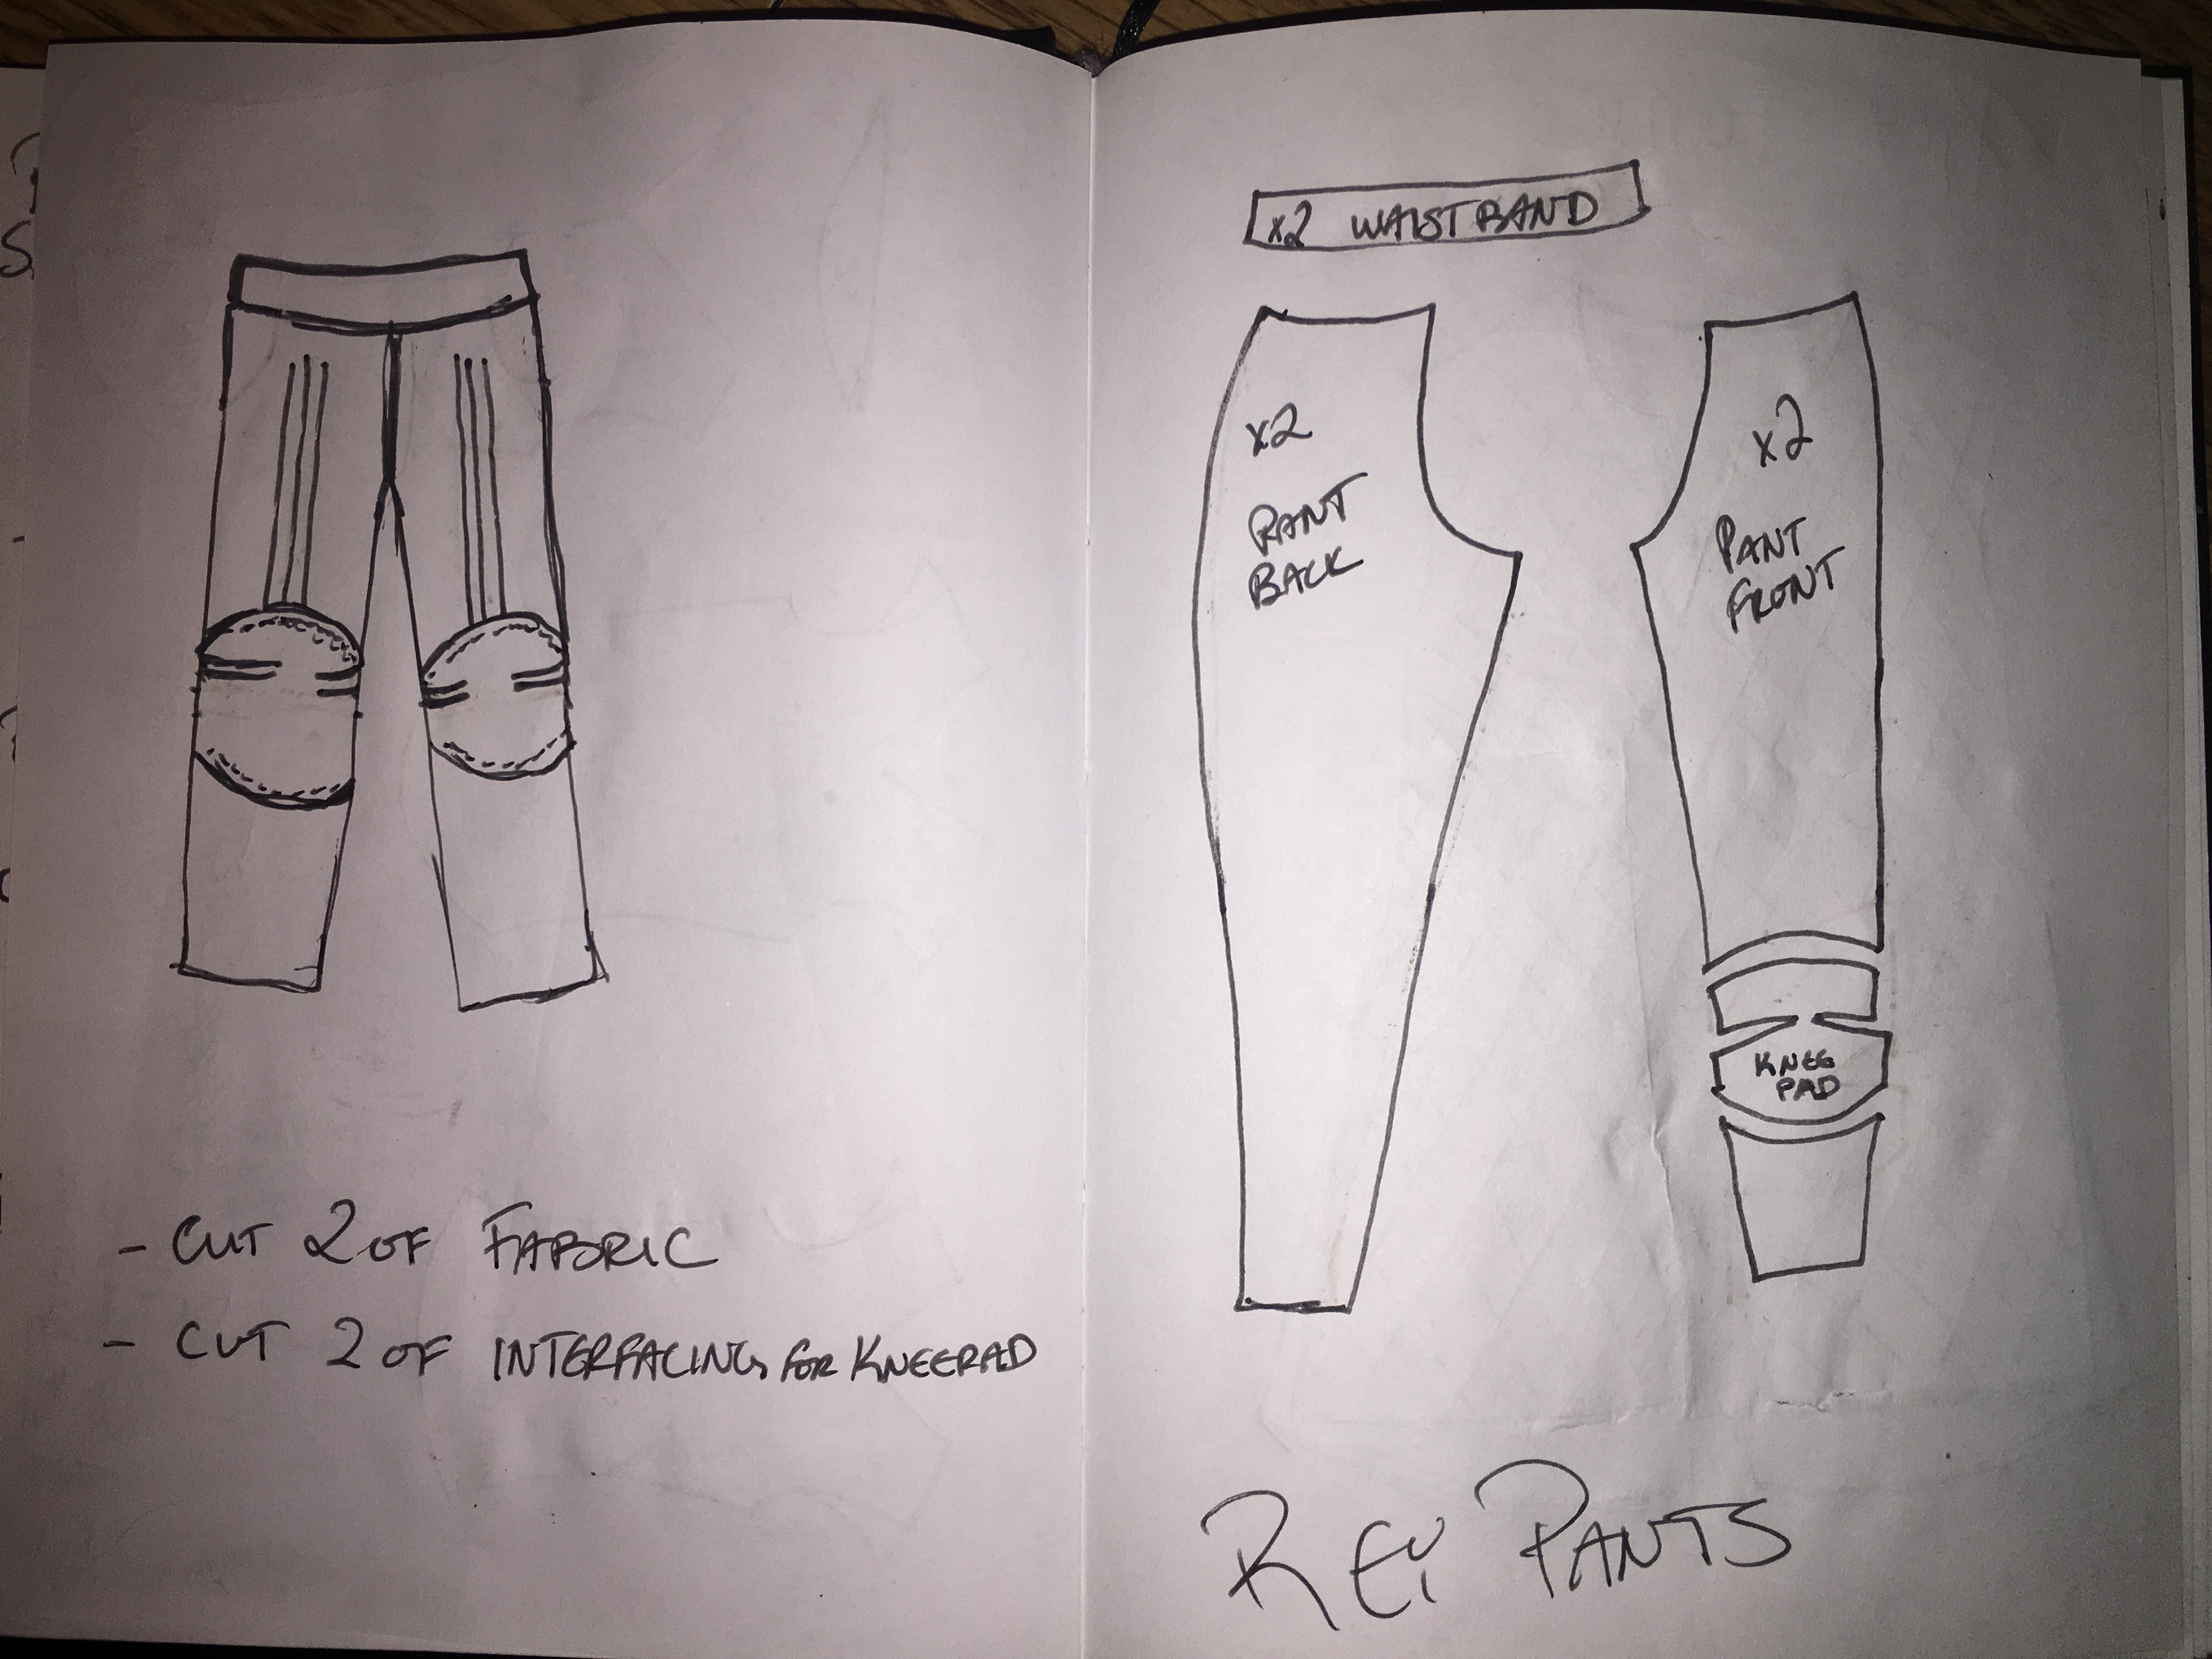 - CUT 2 OF FABRIC
- CUT 2 OF INTERFACING FOR KNEEPAD
x2 WAISTBAND
x2
PANT
BACK
x2
PANT
FRONT
KNEE
PAD
REY PANTS